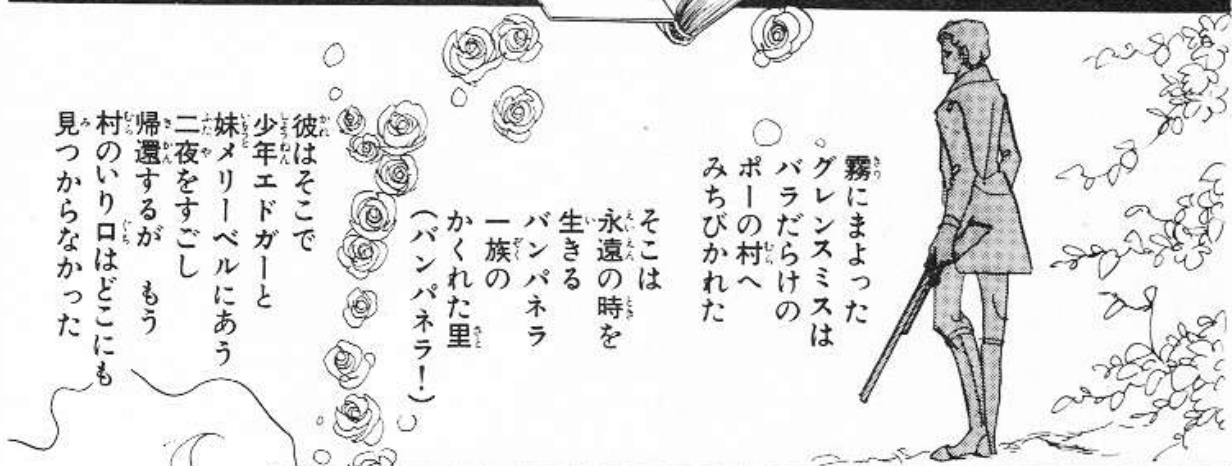 霧にまよった
グレンスミスは
バラだらけの
ポーの村へ
みちびかれた
そこは
永遠の時を
生きる
バンパネラ
一族の
かくれた里
(バンパネラ!)
彼はそこで
少年エドガーと
妹メリーベルにあう
二夜をすごし
帰還するが もう
村のいり口はどこにも
見つからなかった